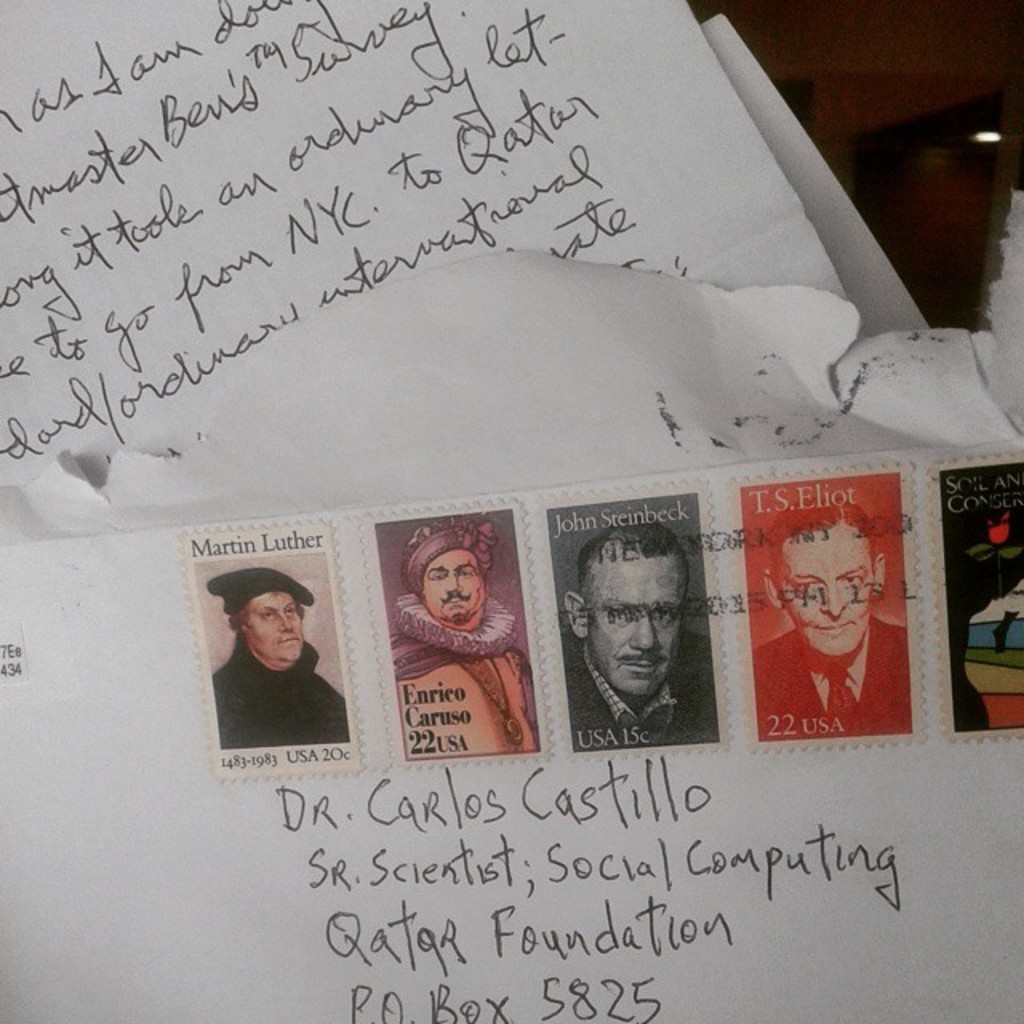 as I am
tmaster Ben's™ Survey.
ong it took an ordinary let-
e to go from NYC. to Qatar
dard/ordinary international
ate
7Ee
434
Martin Luther
1483-1983 USA 20c
Enrico
Caruso
22USA
John Steinbeck
USA 15c
T.S.Eliot
22 USA
SOIL AN
CONSER
NEW YORK NY 100
2015 PM 13 L
DR. Carlos Castillo
SR. Scientist; Social Computing
Qatar Foundation
P.O. Box 5825